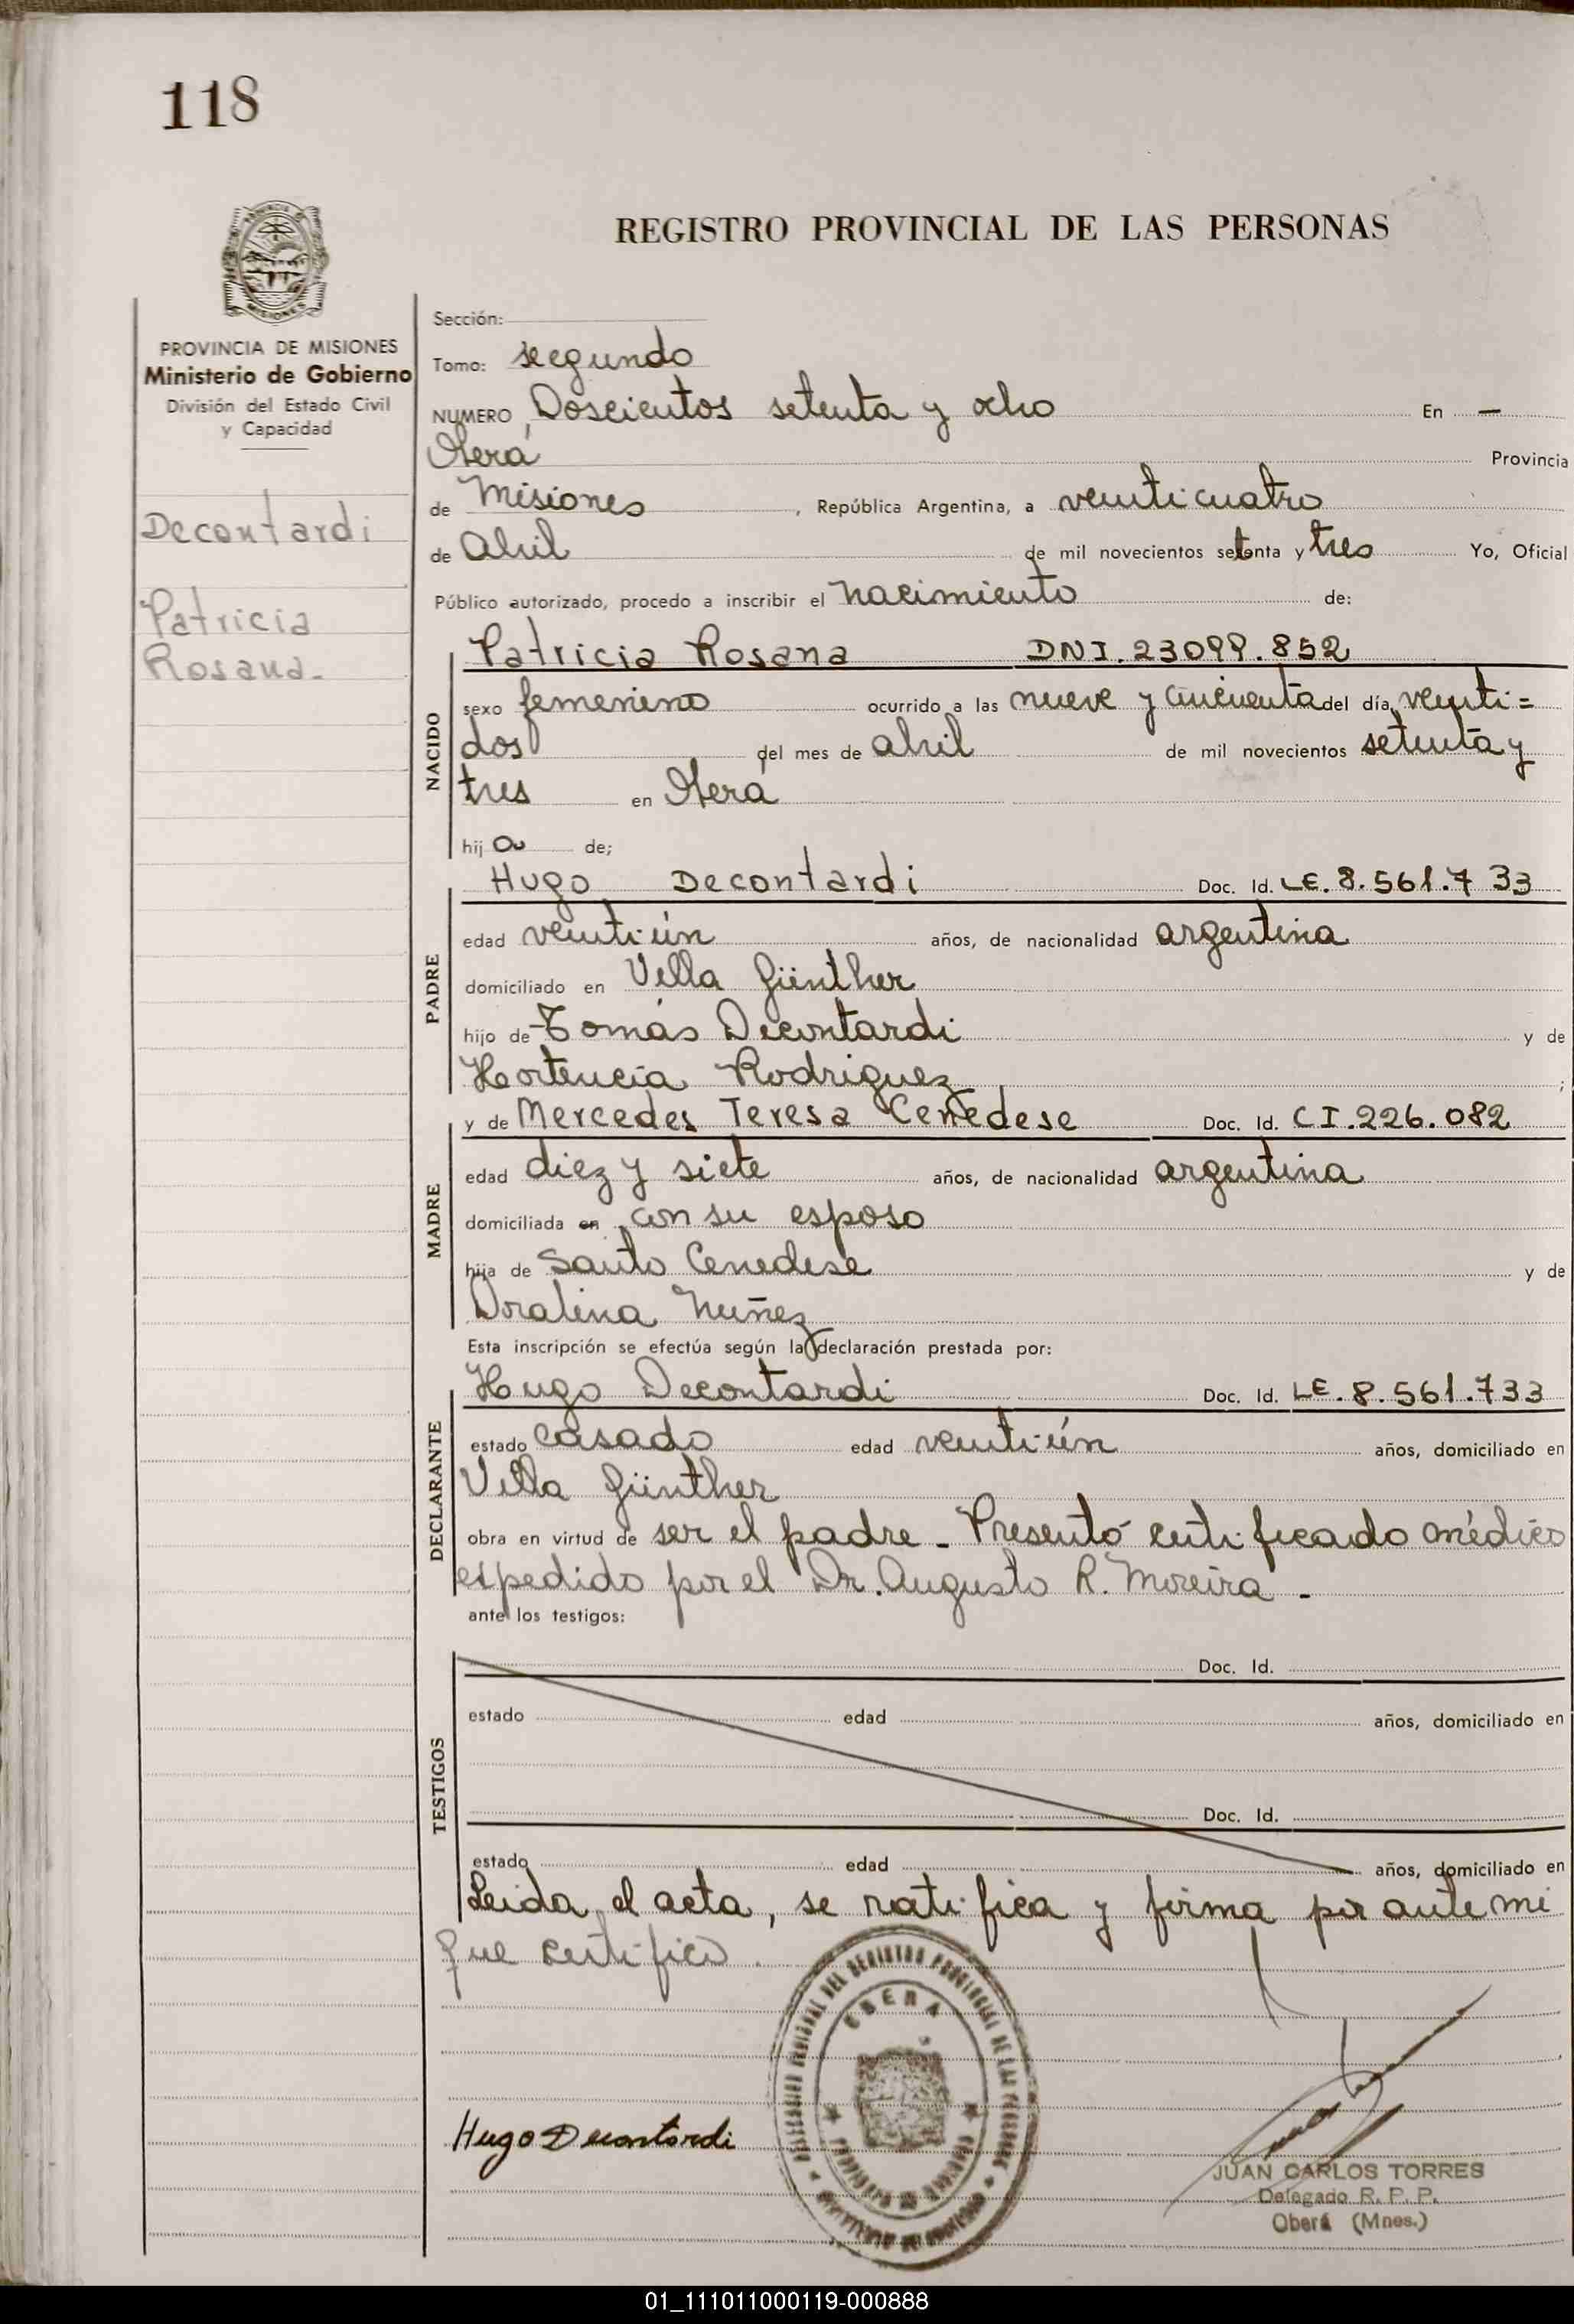 118
REGISTRO PROVINCIAL DE LAS PERSONAS
PROVINCIA DE MISIONES
Ministerio de Gobierno
División del Estado Civil
y Capacidad
Decontardi
Patricia
Rosana.
Sección:
Tomo: segundo
NUMERO Doscientos setenta y ocho En —
Oberá Provincia
de Misiones, República Argentina, a veinticuatro
de abril de mil novecientos setenta y tres Yo, Oficial
Público autorizado, procedo a inscribir el nacimiento de:
NACIDO
Patricia Rosana DNI. 23099.852
sexo femenino ocurrido a las nueve y cincuenta del día venti=
dos del mes de abril de mil novecientos setenta y
tres en Oberá
hija de;
PADRE
Hugo Decontardi Doc. Id. LE. 8.561.733
edad veintiún años, de nacionalidad argentina
domiciliado en Villa Günther
hijo de Tomás Decontardi y de
Hortencia Rodriguez ;
MADRE
y de Mercedes Teresa Cenedese Doc. Id. CI.226.082
edad diez y siete años, de nacionalidad argentina
domiciliada en con su esposo
hija de Santo Cenedese y de
Doralina Nuñez
Esta inscripción se efectúa según la declaración prestada por:
DECLARANTE
Hugo Decontardi Doc. Id. LE. 8.561.733
estado casado edad veintiún años, domiciliado en
Villa Günther
obra en virtud de ser el padre. Presentó certificado médico
espedido por el Dr. Augusto R. Moreira.
ante los testigos:
TESTIGOS
Doc. Id.
estado edad años, domiciliado en
Doc. Id.
estado edad años, domiciliado en
Leida el acta, se ratifica y firma por ante mi
que certifico.
OBERA
Hugo Decontardi
JUAN CARLOS TORRES
Delegado R. P. P.
Oberá (Mnes.)
01_111011000119-000888